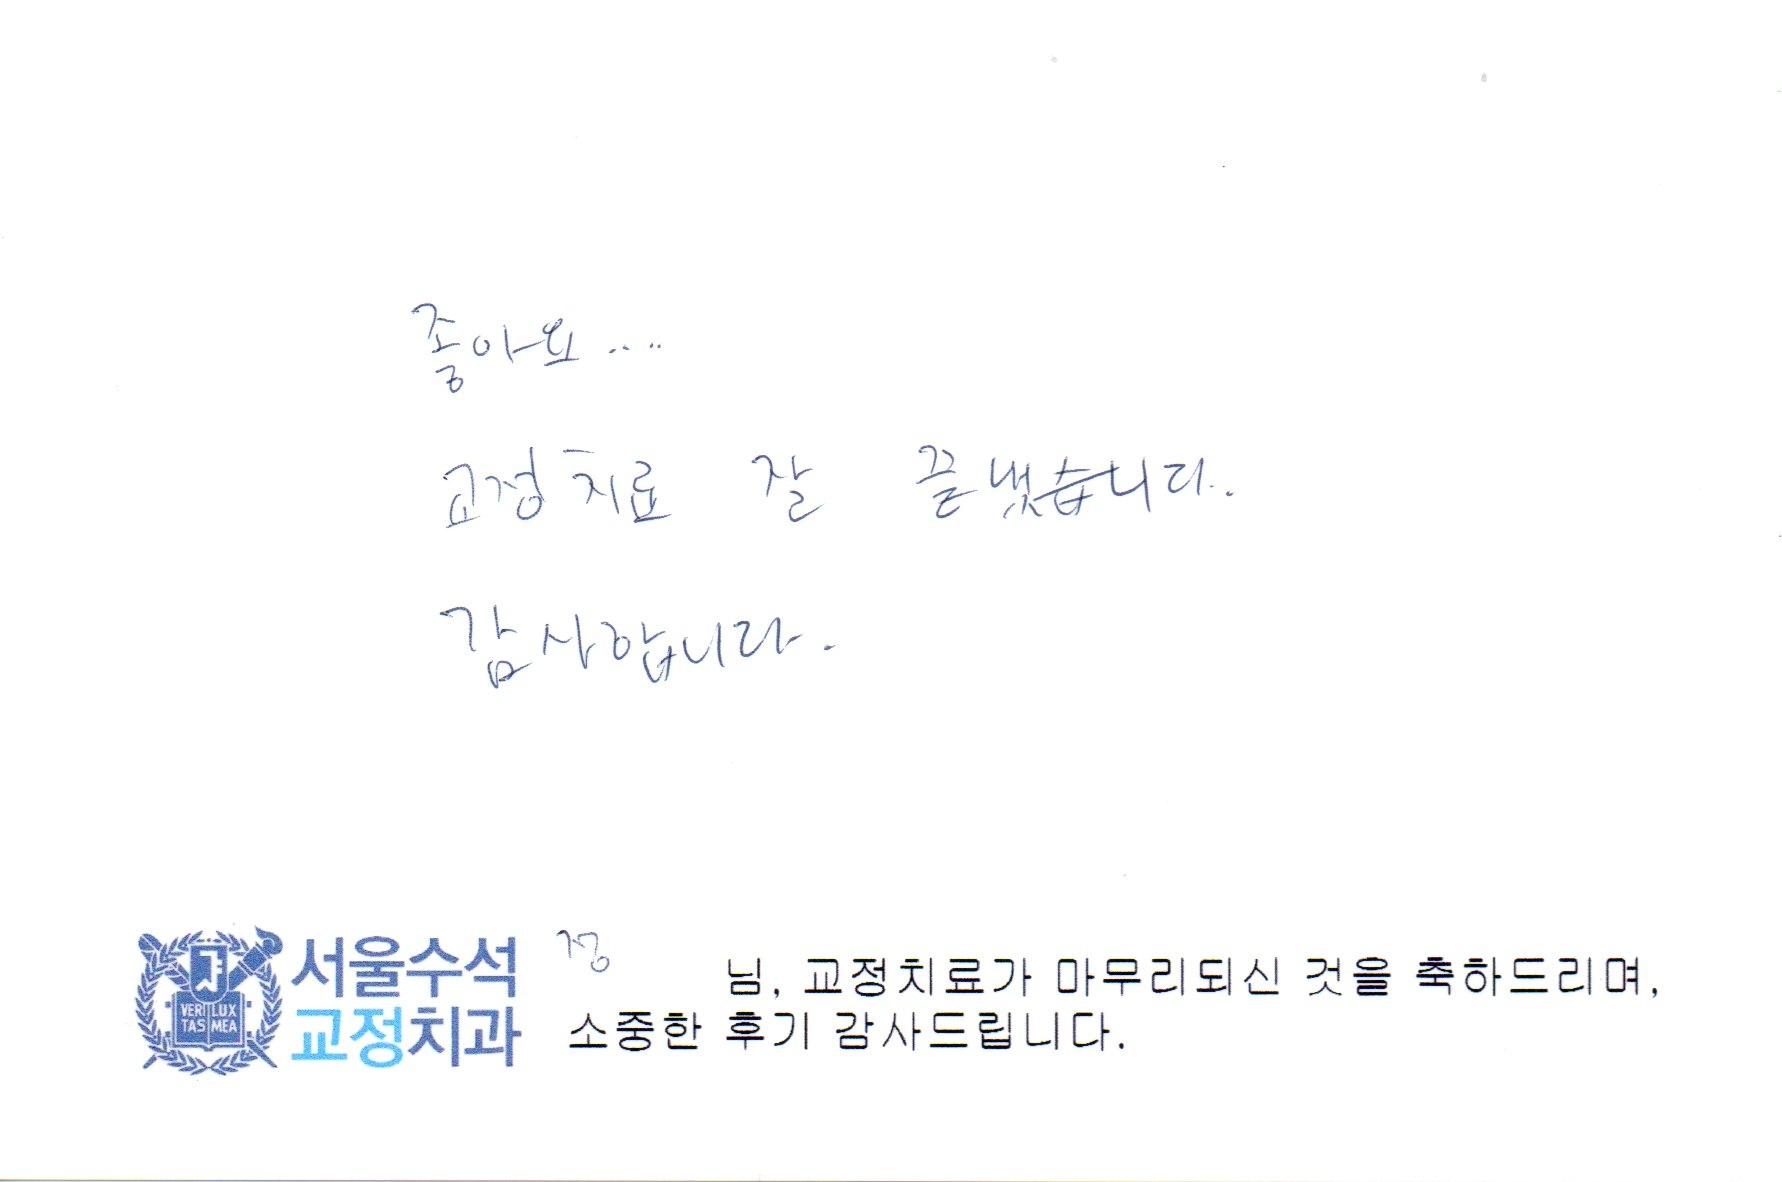 좋아요....
교정치료 잘 끝냈습니다.
감사합니다.
서울수석
교정치과
VERI LUX
TAS MEA
정 님, 교정치료가 마무리되신 것을 축하드리며,
소중한 후기 감사드립니다.